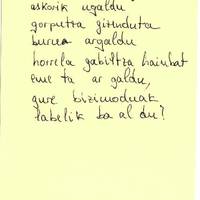 askorik ugaldu
gorputza girnduta
burua argaldu
horrela gabiltza hainbat
eme ta ar galdu,
gure bizimoduak
labelik ba al du?